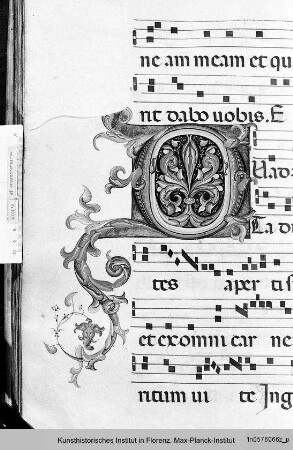 ne am meam et qu
rit dabo uobis. E
uad
La di
tes aper tis
et ex omni car ne
ritum ui te Ing
Kunsthistorisches Institut in Florenz, Max-Planck-Institut